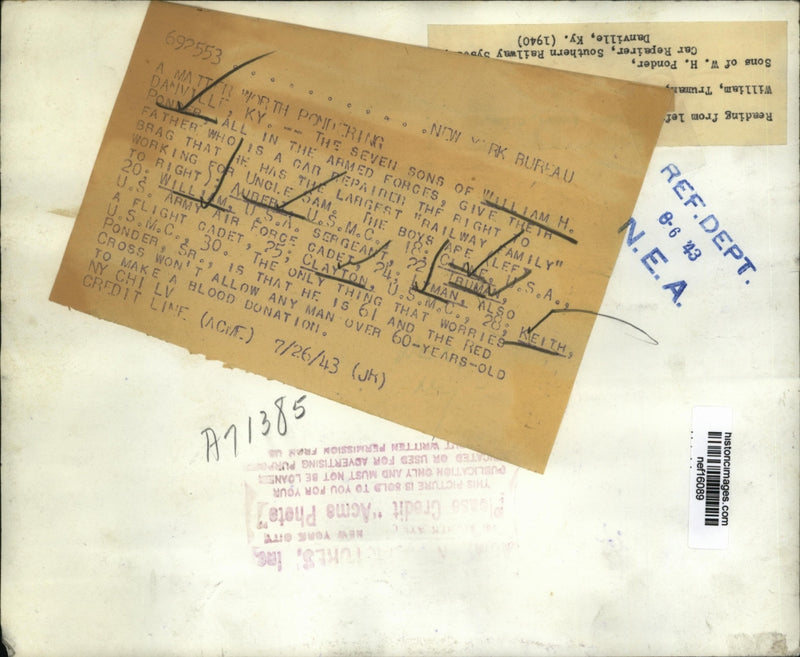 692553
A MATTER WORTH PONDERING . . . . . . . . . . NEW YORK BUREAU
DANVILLE, KY. -- THE SEVEN SONS OF WILLIAM H.
PONDER, ALL IN THE ARMED FORCES, GIVE THEIR
FATHER WHO IS A CAR REPAIRER THE RIGHT TO
BRAG THAT HE HAS THE LARGEST "RAILWAY FAMILY"
WORKING FOR UNCLE SAM. THE BOYS ARE (LEFT
TO RIGHT) AUBERT, U.S.M.C., 18; CLOVE, U.S.A.,
20; WILLIAM, U.S.A. SERGEANT, 22; TRUMAN,
U.S. ARMY AIR FORCE CADET, 24; LYMAN, ALSO
A FLIGHT CADET, 25; CLAYTON, U.S.M.C., 28; KEITH,
U.S.M.C., 30. THE ONLY THING THAT WORRIES
PONDER, SR., IS THAT HE IS 61 AND THE RED
CROSS WON'T ALLOW ANY MAN OVER 60-YEARS-OLD
TO MAKE A BLOOD DONATION.
NY CHI LV
CREDIT LINE (ACME) 7/26/43 (JK)
Reading from lef
William, Truman,
Sons of W. H. Ponder,
Car Repairer, Southern Railway Syste
Danville, Ky. (1940)
REF. DEPT.
8-6 43
N. E. A.
A71385
historicimages.com
nef16089
TURES, Inc
NEW YORK CITY
Please Credit "Acme Photo"
THIS PICTURE IS SOLD TO YOU FOR YOUR
PUBLICATION ONLY AND MUST NOT BE LOANED
ICATED OR USED FOR ADVERTISING PURPOSES
WRITTEN PERMISSION FROM US